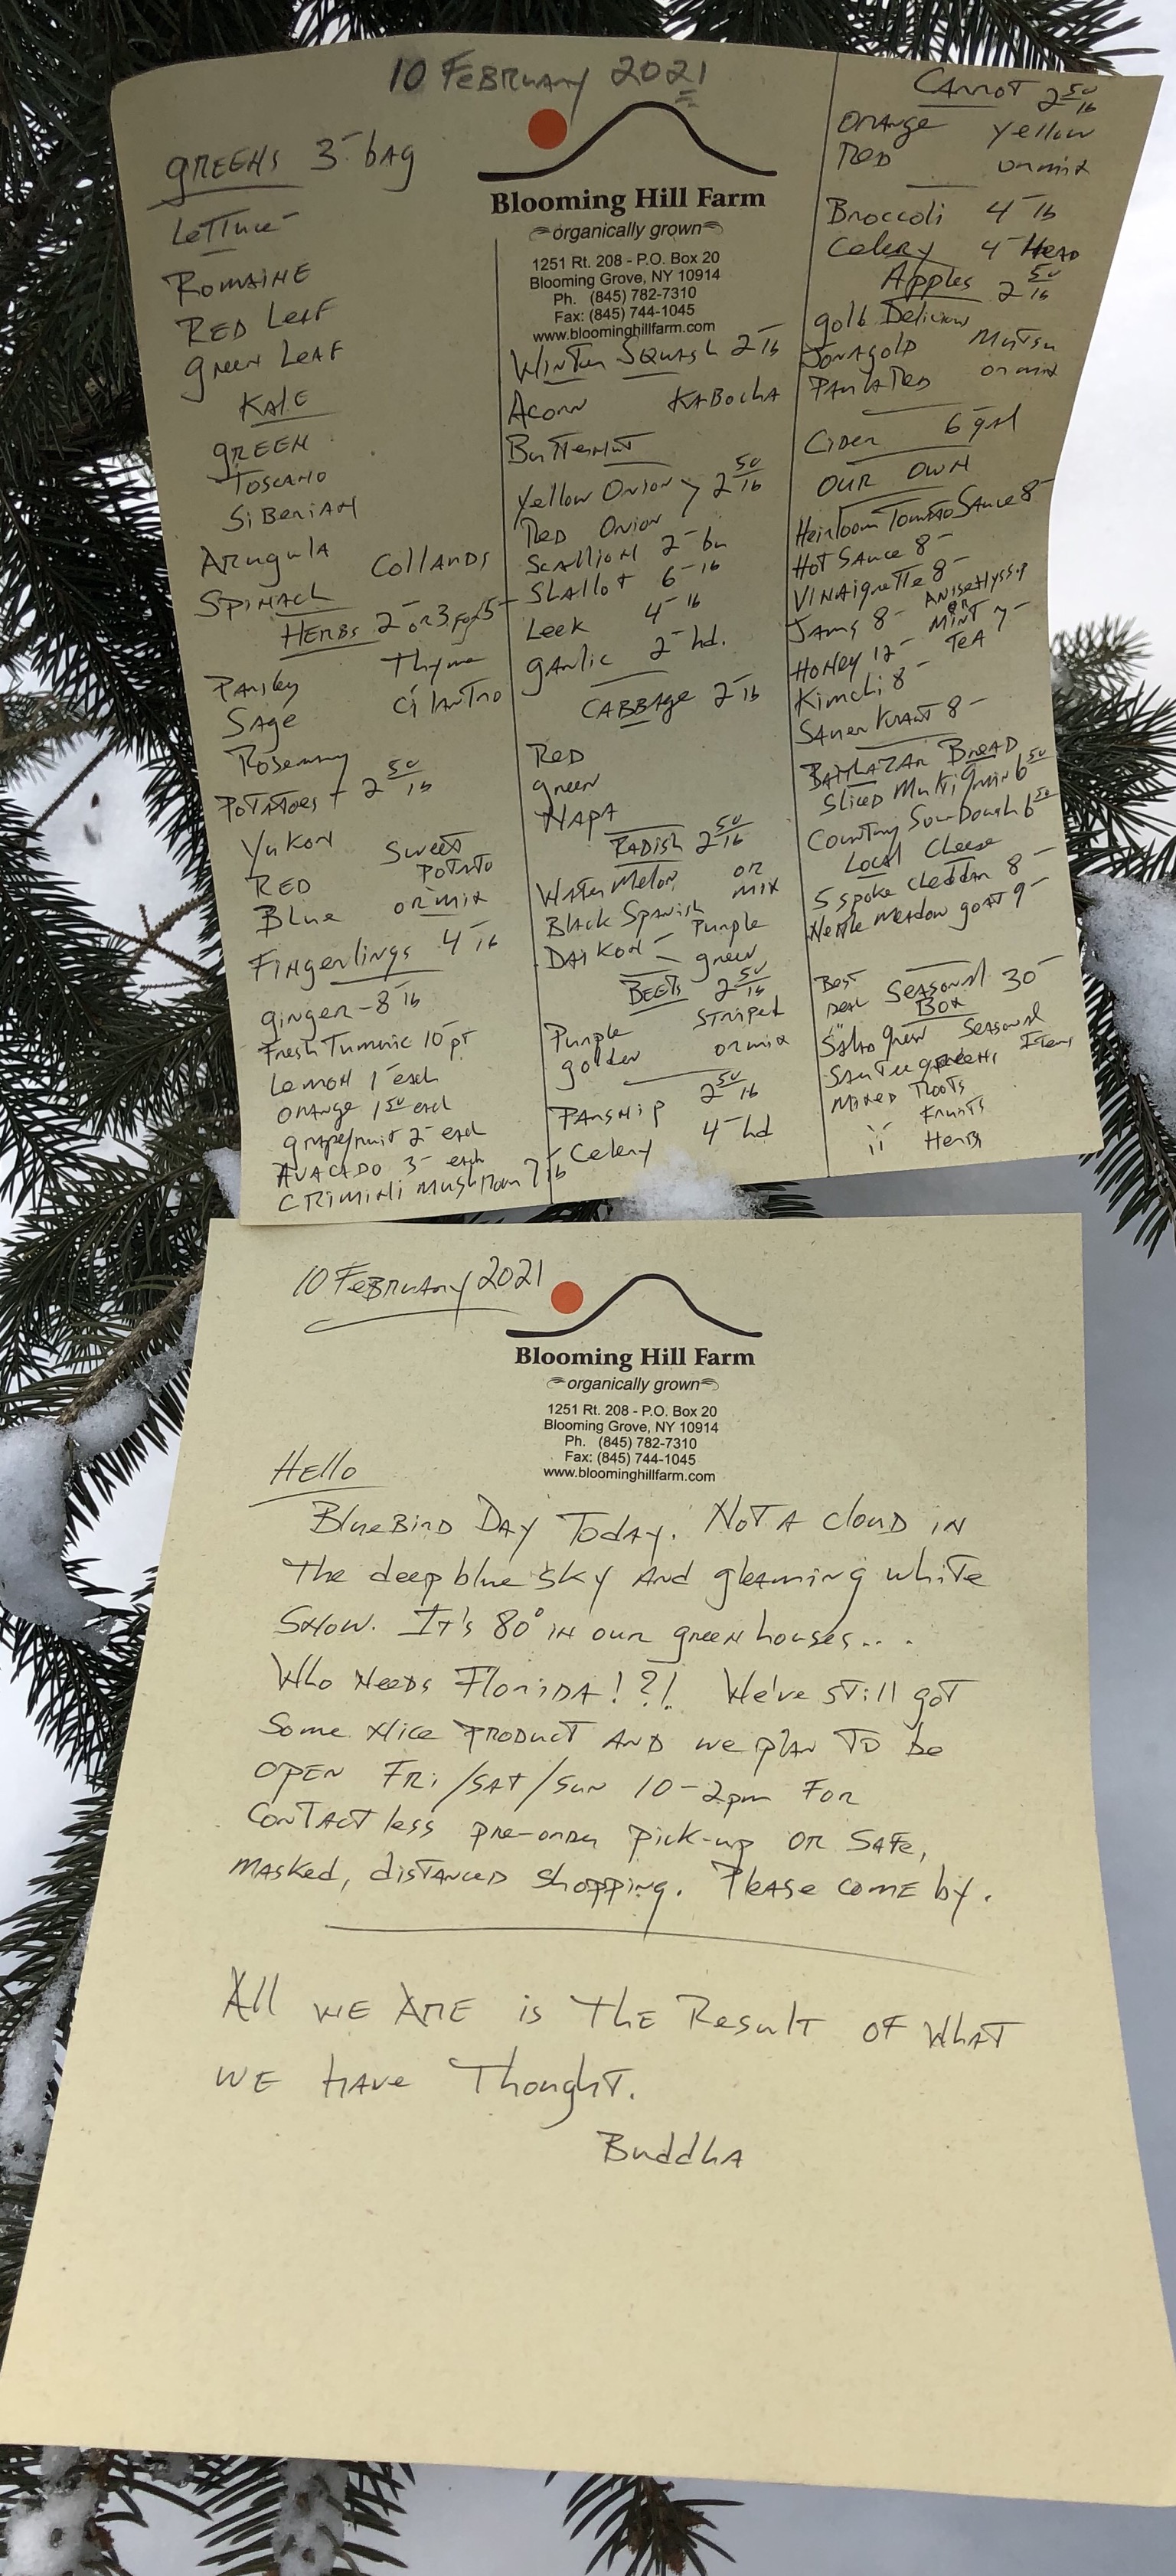 10 February 2021
Greens 3- bag
Lettuce
Romaine
Red Leaf
Green Leaf
Kale
Green
Toscano
Siberian
Arugula Collards
Spinach
Herbs 2- or 3 for 5-
Parsley Thyme
Sage Cilantro
Rosemary
Potatoes 2 50/lb
Yukon Sweet Potato
Red
Blue or mix
Fingerlings 4- lb
Ginger - 8 lb
Fresh Turmeric 10 pt
Lemon 1- each
Orange 1 50 each
Grapefruit 2- each
Avacado 3- each
Crimini Mushroom 7- lb
Blooming Hill Farm
organically grown
1251 Rt. 208 - P.O. Box 20
Blooming Grove, NY 10914
Ph. (845) 782-7310
Fax: (845) 744-1045
www.bloominghillfarm.com
Winter Squash 2- lb
Acorn Kabocha
Butternut
Yellow Onion > 2 50/lb
Red Onion
Scallion 2- bu
Shallot 6- lb
Leek 4- lb
Garlic 2- hd.
Cabbage 2- lb
Red
Green
Napa
Radish 2 50/lb
Watermelon or mix
Black Spanish
Daikon - Purple
- green
Beets 2 50/lb
Purple Striped
Golden or mix
Parsnip 2 50/lb
Celery 4- hd
Carrot 2 50/lb
Orange Yellow
Red or mix
Broccoli 4- lb
Celery 4- Head
Apples 2 50/lb
Gold Delicious
Jonagold Mutsu
PaulaRed or mix
Cider 6- gal
Our Own
Heirloom Tomato Sauce 8-
Hot Sauce 8-
Vinaigrette 8-
Jams 8- Anise Hyssop or Mint Tea 7-
Honey 12-
Kimchi 8-
Sauerkraut 8-
Balthazar Bread
Sliced Multigrain 6 50
Country Sourdough 6 50
Local Cheese
5 spoke cheddar 8-
Nettle Meadow goat 9-
Best Deal Seasonal Box 30-
Seasonal Items
Mixed Roots
Fruits
Herbs
10 February 2021
Blooming Hill Farm
organically grown
1251 Rt. 208 - P.O. Box 20
Blooming Grove, NY 10914
Ph. (845) 782-7310
Fax: (845) 744-1045
www.bloominghillfarm.com
Hello
BlueBird Day Today. Not a cloud in
the deep blue sky and gleaming white
snow. It's 80° in our greenhouses...
Who needs Florida!?! We've still got
some nice product and we plan to be
open Fri/Sat/Sun 10-2pm for
contactless pre-order pick-up or safe,
masked, distanced shopping. Please come by.
All we are is the Result of what
we have Thought.
Buddha